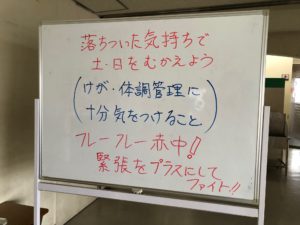 落ちついた気持ちで
土・日をむかえよう
(けが・体調管理に
十分気をつけること)
フレーフレー赤中!
緊張をプラスにして
ファイト!!